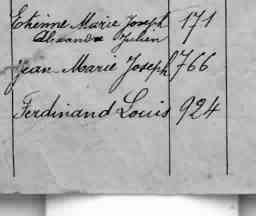 Etienne Marie Joseph 171
Alexandre Julien
Jean Marie Joseph 766
Ferdinand Louis 924